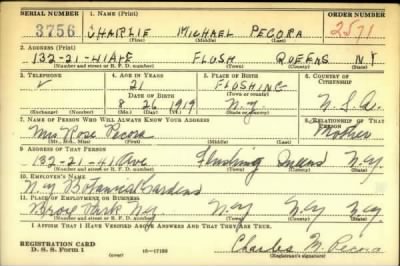 SERIAL NUMBER 1. NAME (Print) ORDER NUMBER
3756 CHARLIE MICHAEL PECORA 2571
(First) (Middle) (Last)
2. ADDRESS (Print)
132-21-41 AVE FLUSH QUEENS NY
(Number and street or R. F. D. number) (Town) (County) (State)
3. TELEPHONE 4. AGE IN YEARS 5. PLACE OF BIRTH 6. COUNTRY OF CITIZENSHIP
21 FLUSHING
DATE OF BIRTH (Town or county)
8 26 1919 N.Y. U.S.A.
(Exchange) (Number) (Mo.) (Day) (Yr.) (State or country)
7. NAME OF PERSON WHO WILL ALWAYS KNOW YOUR ADDRESS 8. RELATIONSHIP OF THAT PERSON
Mrs Rose Pecora Mother
(Mr., Mrs., Miss) (First) (Middle) (Last)
9. ADDRESS OF THAT PERSON
132-21-41 Ave Flushing Queens N.Y.
(Number and street or R. F. D. number) (Town) (County) (State)
10. EMPLOYER'S NAME
N.Y Botanical Gardens
11. PLACE OF EMPLOYMENT OR BUSINESS
Park N.Y N.Y N.Y N.Y.
(Number and street or R. F. D. number) (Town) (County) (State)
I AFFIRM THAT I HAVE VERIFIED ABOVE ANSWERS AND THAT THEY ARE TRUE.
REGISTRATION CARD
D. S. S. Form 1 16—17105 Charles M. Pecora
(Registrant's signature)